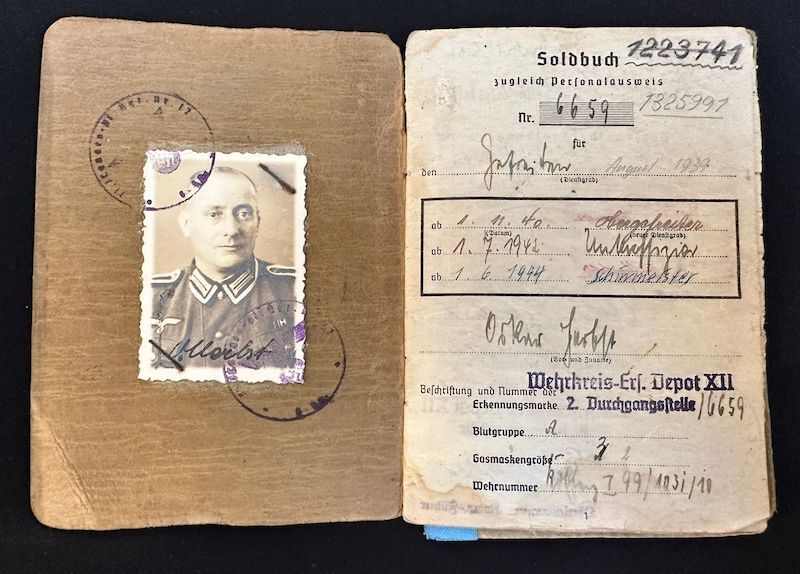 Nr. 17
O. Herbst
Soldbuch 1223741
zugleich Personalausweis
Nr. 6659 1325991
für
den Gefreiten August 1939
(Dienstgrad)
ab 1. 11. 40.
(Datum) (neuer Dienstgrad)
ab 1. 7. 1942 Unteroffizier
ab 1. 6. 1944 Schirrmeister
Oskar Herbst
(Vor- und Zuname)
Wehrkreis-Ers. Depot XII
Beschriftung und Nummer der
Erkennungsmarke 2. Durchgangsstelle /6659
Blutgruppe A
Gasmaskengröße 3 2
Wehrnummer I 99/103i/10